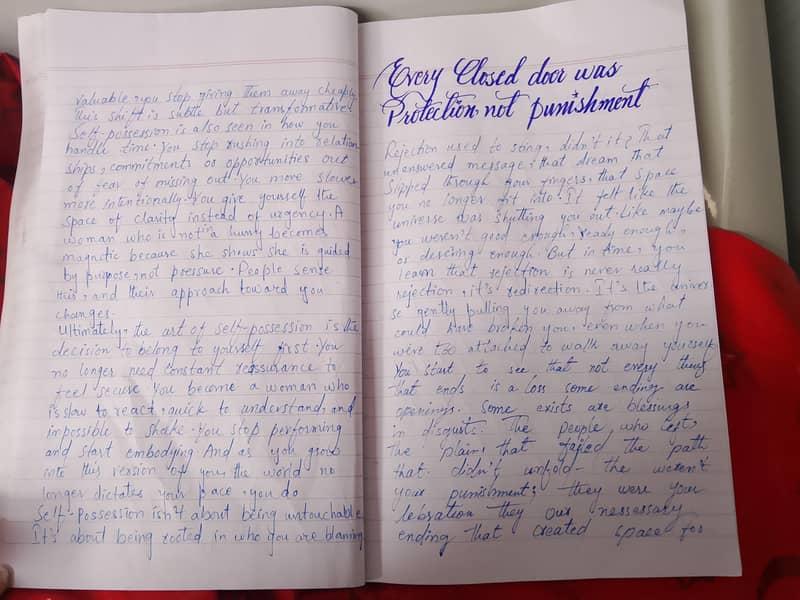 valuable, you stop giving them away cheaply
this shift is subtle but transformative
Self-possession is also seen in how you
handle time. You stop rushing into relation
ships, commitments or opportunities out
of fear of missing out. You move slower
more intentionally. You give yourself the
space of clarity instead of urgency. A
woman who is not in a hurry becomes
magnetic because she shows she is guided
by purpose, not pressure. People sense
this, and their approach toward you
changes.
Ultimately, the art of self-possession is the
decision to belong to yourself first. You
no longer need constant reassurance to
feel secure. You become a woman who
is slow to react, quick to understand, and
impossible to shake. You stop performing
and start embodying. And as you grow
into this version of you, the world no
longer dictates your pace. you do
Self-Possession isn't about being untouchable
It's about being rooted in who you are
Every Closed door was
Protection, not punishment
Rejection used to sting, didn't it? That
unanswered message, that dream that
slipped through your fingers, that space
you no longer fit into. It felt like the
universe was shutting you out. Like maybe
you weren't good enough, ready enough,
or enough. But in time, you
learn that rejection is never really
rejection, it's redirection. It's the univer
se gently pulling you away from what
could have broken you, even when you
were too attached to walk away yourself
You start to see that not every thing
that ends is a loss some ending are
openings. Some exists are blessings
in The people who left
the plans that failed the path
that didn't unfold - the weren't
your punishment; they were your
they our nessessary
ending that created space for